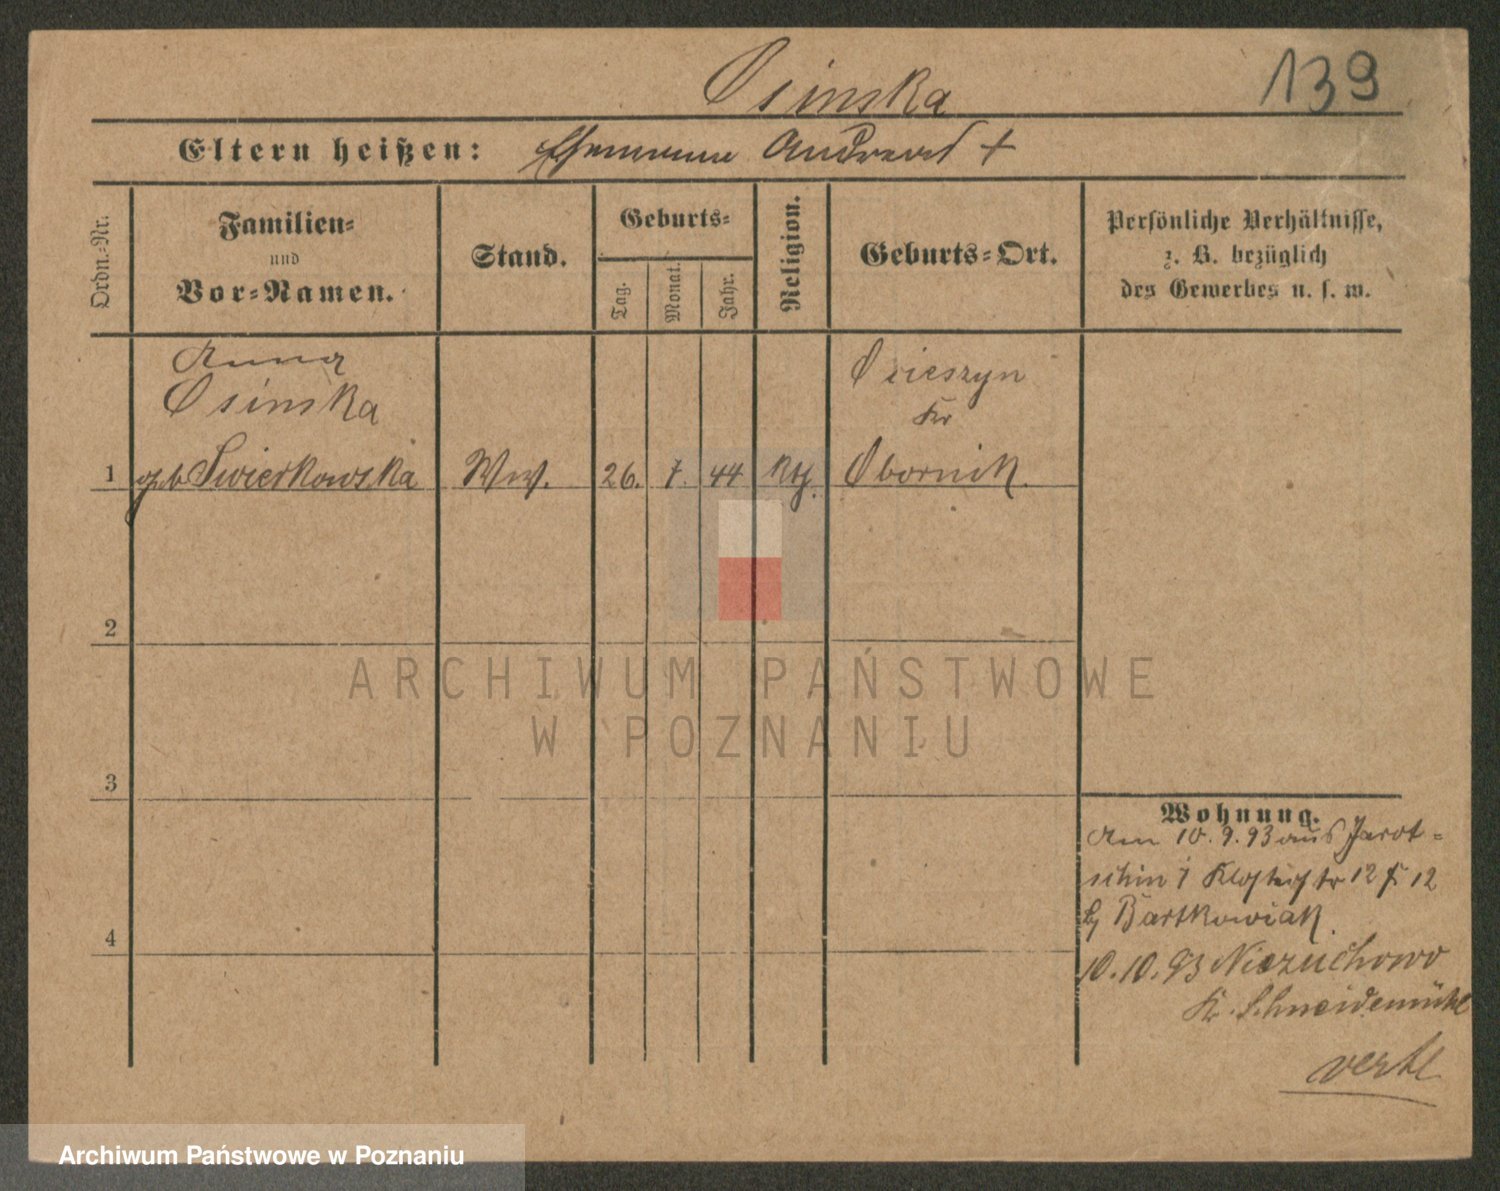 Osinska
139
Eltern heißen: Ehemann Andreas †
Ordn.-Nr.
Familien-
und
Vor-Namen.
Stand.
Geburts-
Tag.
Monat.
Jahr.
Religion.
Geburts-Ort.
Persönliche Verhältnisse,
z. B. bezüglich
des Gewerbes u. s. w.
Anna
Osinska
1 geb Swierkowska Ww. 26. 7. 44 kth.
Ocieszyn
Kr
Obornik.
2
3
4
Wohnung.
Am 10.9.93 aus Jarot-
schin i Klosterstr 12 12
b/ Bartkowiak.
10.10.93 Niezuchowo
Kr. Schneidemühl
ARCHIWUM PAŃSTWOWE
W POZNANIU
Archiwum Państwowe w Poznaniu